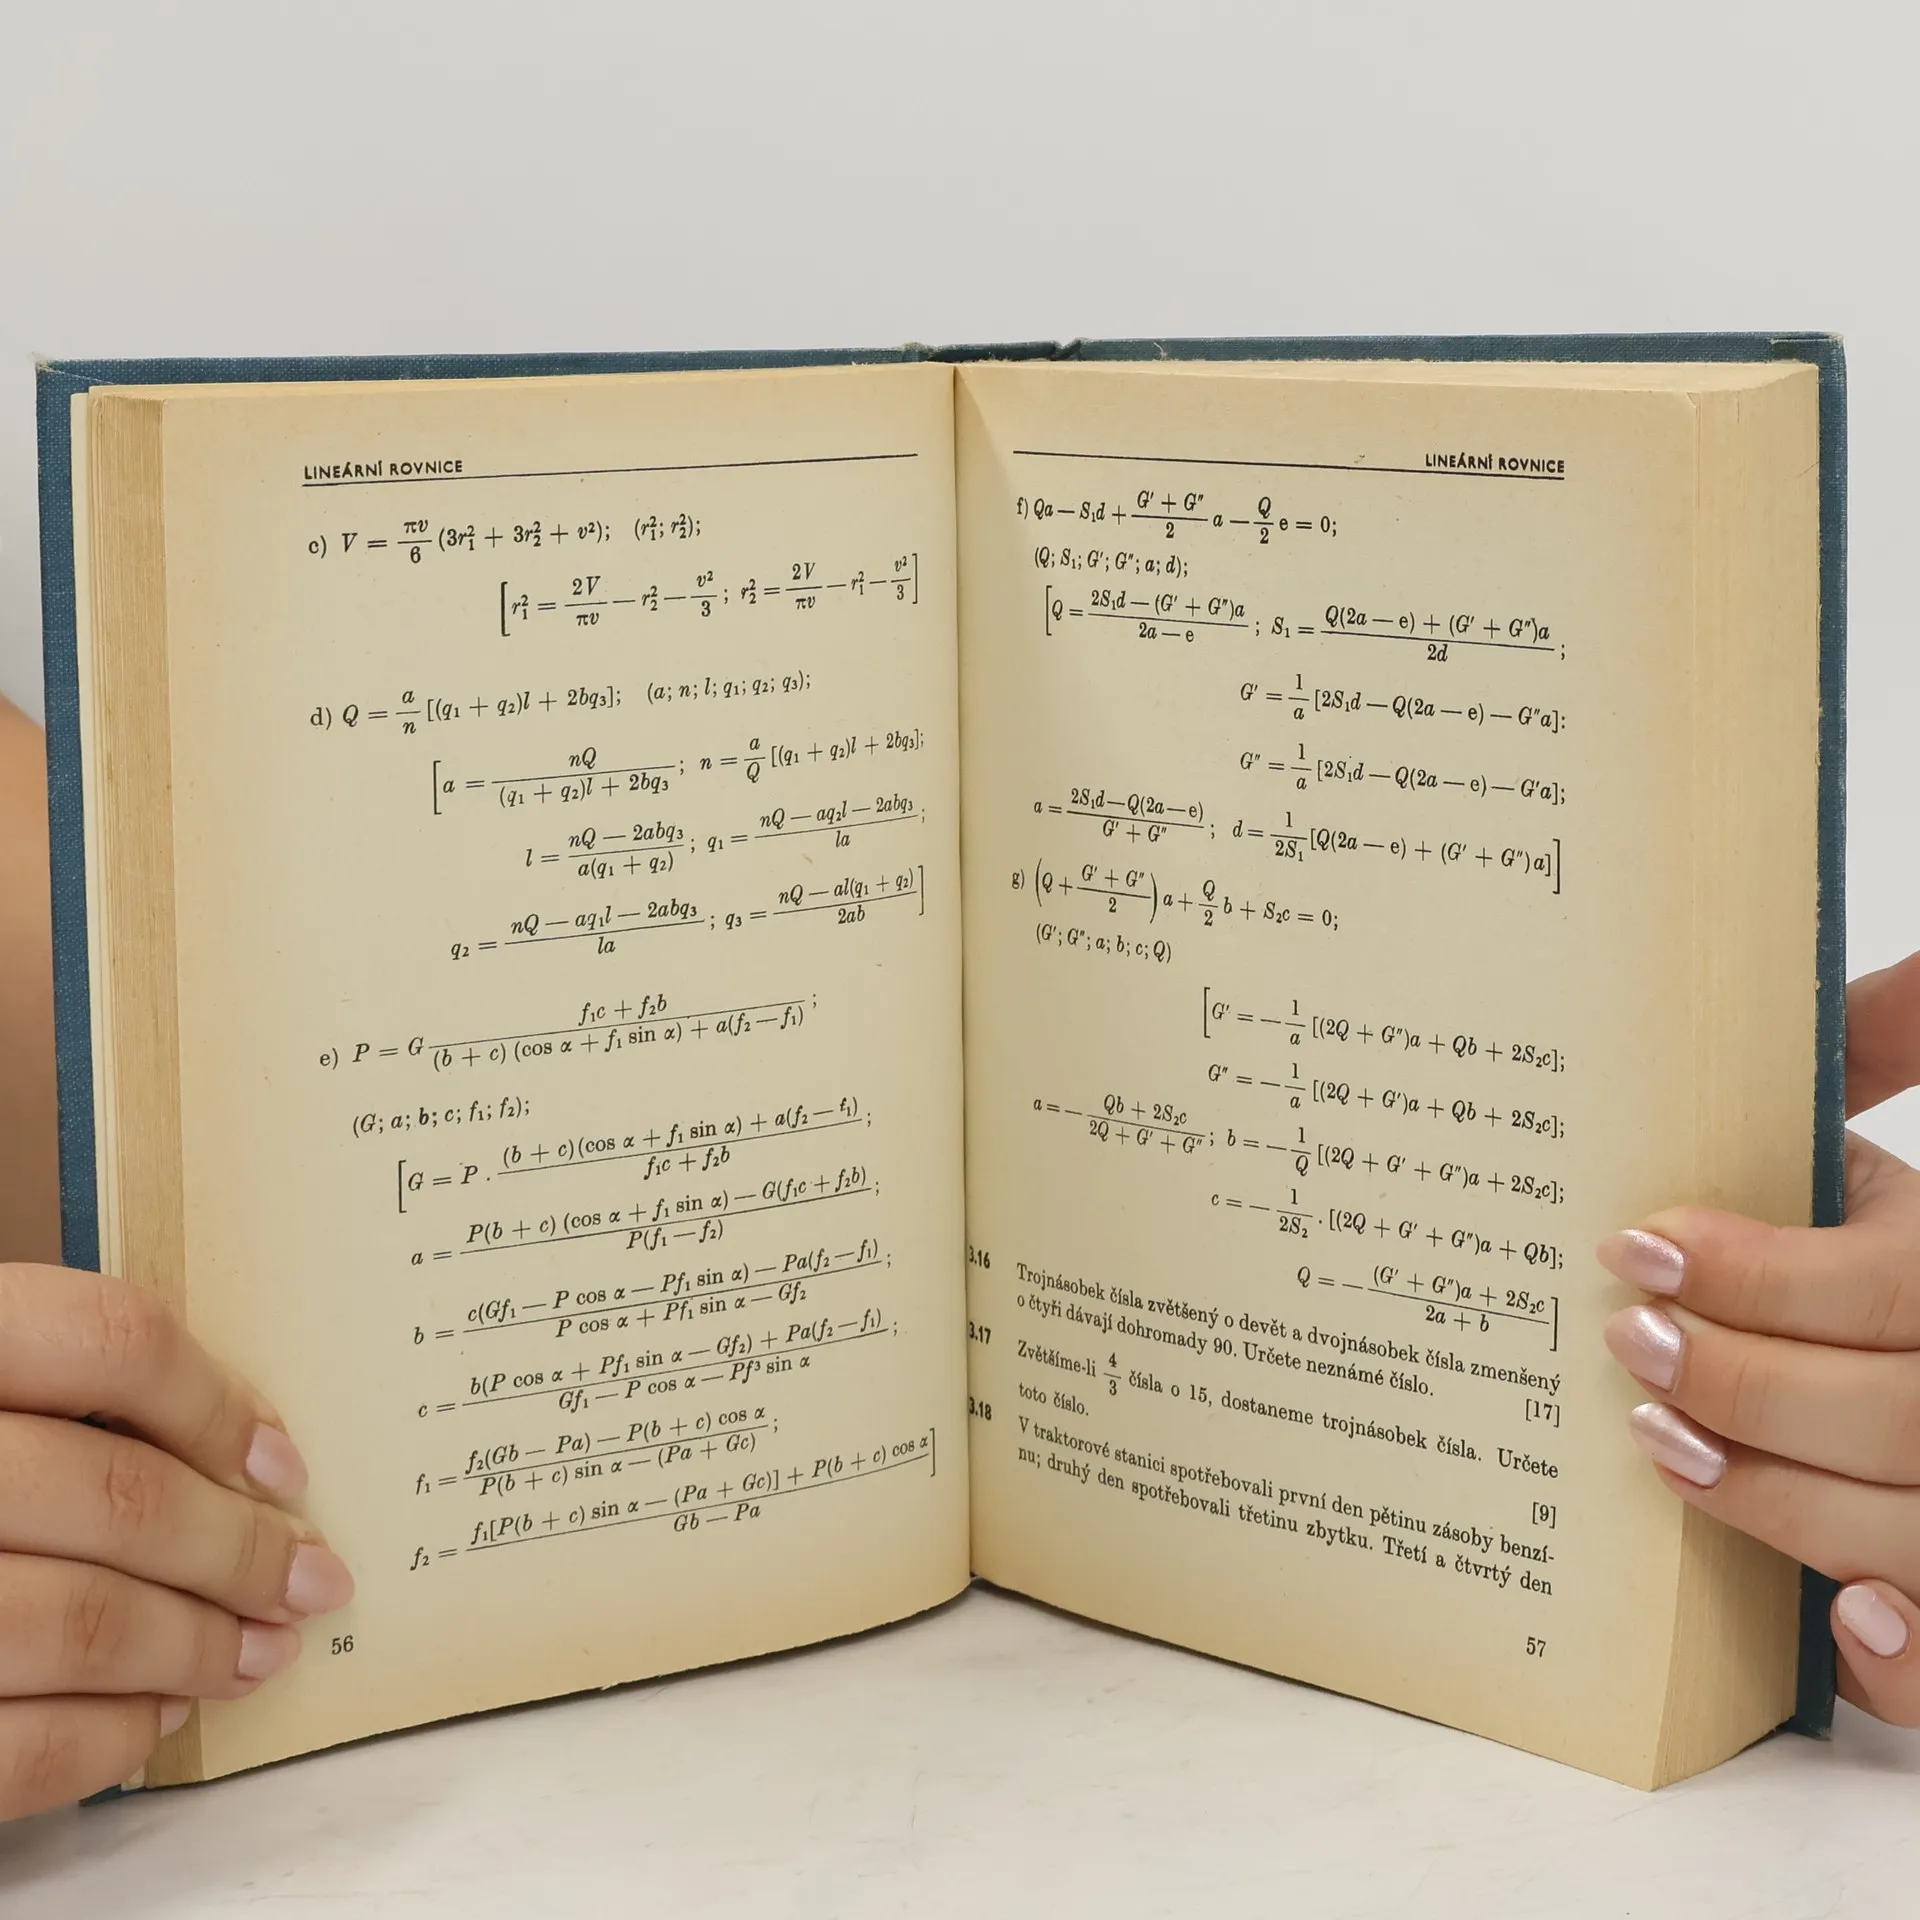 LINEÁRNÍ ROVNICE
c) V = πv/6 (3r₁² + 3r₂² + v²); (r₁²; r₂²);
[r₁² = 2V/πv − r₂² − v²/3; r₂² = 2V/πv − r₁² − v²/3]
d) Q = a/n [(q₁ + q₂)l + 2bq₃]; (a; n; l; q₁; q₂; q₃);
[a = nQ/((q₁ + q₂)l + 2bq₃); n = a/Q [(q₁ + q₂)l + 2bq₃];
l = (nQ − 2abq₃)/(a(q₁ + q₂)); q₁ = (nQ − aq₂l − 2abq₃)/(la);
q₂ = (nQ − aq₁l − 2abq₃)/(la); q₃ = (nQ − al(q₁ + q₂))/(2ab)]
e) P = G (f₁c + f₂b)/((b + c) (cos α + f₁ sin α) + a(f₂ − f₁));
(G; a; b; c; f₁; f₂);
[G = P . ((b + c)(cos α + f₁ sin α) + a(f₂ − f₁))/(f₁c + f₂b);
a = (P(b + c) (cos α + f₁ sin α) − G(f₁c + f₂b))/(P(f₁ − f₂));
b = (c(Gf₁ − P cos α − Pf₁ sin α) − Pa(f₂ − f₁))/(P cos α + Pf₁ sin α − Gf₂);
c = (b(P cos α + Pf₁ sin α − Gf₂) + Pa(f₂ − f₁))/(Gf₁ − P cos α − Pf³ sin α);
f₁ = (f₂(Gb − Pa) − P(b + c) cos α)/(P(b + c) sin α − (Pa + Gc));
f₂ = (f₁[P(b + c) sin α − (Pa + Gc)] + P(b + c) cos α)/(Gb − Pa)]
56
LINEÁRNÍ ROVNICE
f) Qa − S₁d + (G′ + G″)/2 a − Q/2 e = 0;
(Q; S₁; G′; G″; a; d);
[Q = (2S₁d − (G′ + G″)a)/(2a − e); S₁ = (Q(2a − e) + (G′ + G″)a)/(2d);
G′ = 1/a [2S₁d − Q(2a − e) − G″a]:
G″ = 1/a [2S₁d − Q(2a − e) − G′a];
a = (2S₁d − Q(2a − e))/(G′ + G″); d = 1/(2S₁) [Q(2a − e) + (G′ + G″) a]]
g) (Q + (G′ + G″)/2) a + Q/2 b + S₂c = 0;
(G′; G″; a; b; c; Q)
[G′ = − 1/a [(2Q + G″)a + Qb + 2S₂c];
G″ = − 1/a [(2Q + G′)a + Qb + 2S₂c];
a = − (Qb + 2S₂c)/(2Q + G′ + G″); b = − 1/Q [(2Q + G′ + G″)a + 2S₂c];
c = − 1/(2S₂) . [(2Q + G′ + G″)a + Qb];
Q = − ((G′ + G″)a + 2S₂c)/(2a + b)]
3.16 Trojnásobek čísla zvětšený o devět a dvojnásobek čísla zmenšený
o čtyři dávají dohromady 90. Určete neznámé číslo. [17]
3.17 Zvětšíme-li 4/3 čísla o 15, dostaneme trojnásobek čísla. Určete
toto číslo. [9]
3.18 V traktorové stanici spotřebovali první den pětinu zásoby benzí-
nu; druhý den spotřebovali třetinu zbytku. Třetí a čtvrtý den
57